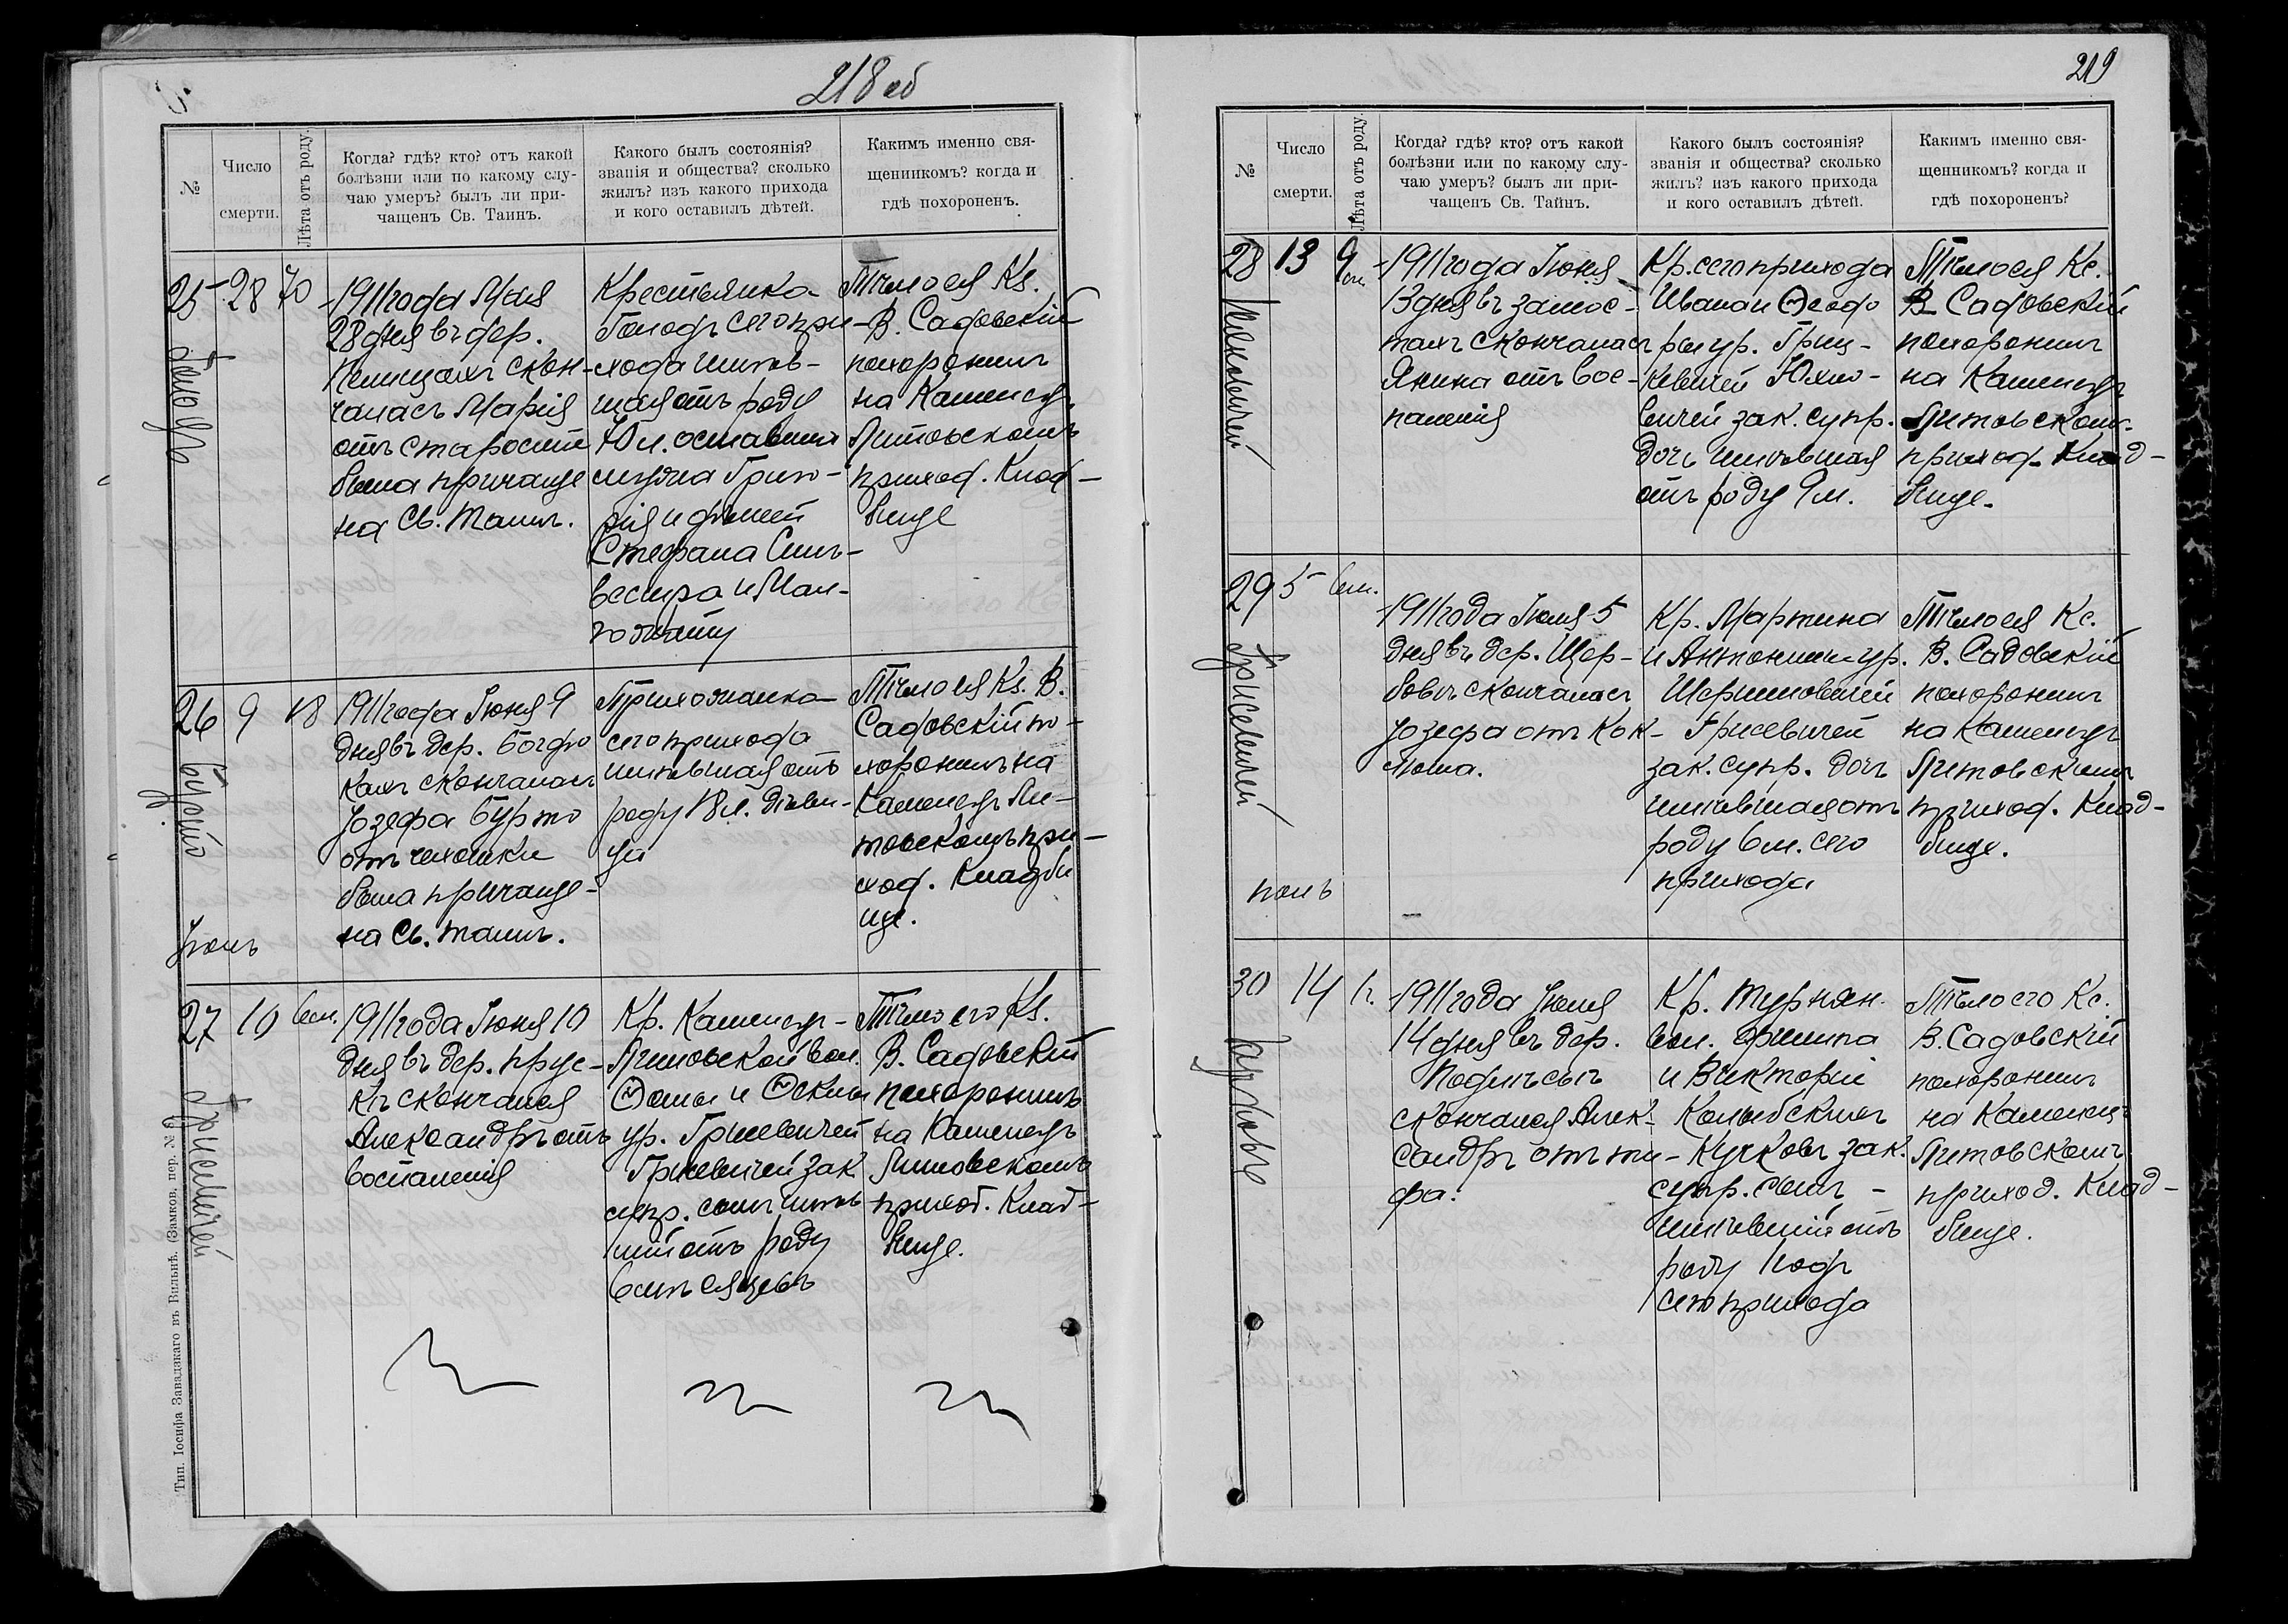 218 об
№
Число
смерти.
Лѣта отъ роду.
Когда? гдѣ? кто? отъ какой
болѣзни или по какому слу-
чаю умеръ? былъ ли при-
чащенъ Св. Таинъ.
Какого былъ состоянія?
званія и общества? сколько
жилъ? изъ какого прихода
и кого оставилъ дѣтей.
Какимъ именно свя-
щенникомъ? когда и
гдѣ похороненъ.
25
28
70
1911 года Мая
28 дня въ дер.
скон-
чалась Марія
отъ старости
была причаще
на Св. Таинъ.
Крестьянка
сего при-
хода жив-
шая отъ роду
70 л. оставила
мужа Григо-
рія и дѣтей
Стефана Силь-
вестра и Мал-
горжату
Тѣло ея Кs.
В. Садовскій
похоронилъ
на Каменец.
Литовскомъ
приход. Клад-
бище
26
Бурто
9
18
Іюнь
1911 года Іюня 9
дня въ дер. Богдю
кахъ скончалась
Іозефа Бурто
отъ чахотки
была причаще-
на Св. таинъ.
Прихожанка
сего прихода
жившая отъ
роду 18 л. дѣви-
ца
Тѣло ея Кs. В.
Садовскій по-
хоронилъ на
Каменецъ Ли-
товскомъ при-
ход. Кладби
ще.
27
Грисевичей
10
6 м.
1911 года Іюня 10
дня въ дер. Прус-
къ скончался
Александръ отъ
воспаленія
Кр. Каменец-
Литовской вол.
Ѳомы и Ѳеклы
ур. Грисевичей
Грисевичей зак
супр. сынъ жив
шій отъ роду
6 мѣсяцевъ
Тѣло его Кs.
В. Садовскій
похоронилъ
на Каменецъ
Литовскомъ
приход. Клад-
бище.
Тип. Іосифа Завадзкаго въ Вильнѣ. (Замков. пер. №
219
№
Число
смерти.
Лѣта отъ роду.
Когда? гдѣ? кто? отъ какой
болѣзни или по какому слу-
чаю умеръ? былъ ли при-
чащенъ Св. Тайнъ.
Какого былъ состоянія?
званія и общества? сколько
жилъ? изъ какого прихода
и кого оставилъ дѣтей.
Какимъ именно свя-
щенникомъ? когда и
гдѣ похороненъ?
28
13
9 м.
1911 года Іюня
13 дня въ Замос-
тахъ скончалась
Янина отъ вос-
паленія
Кр. сего прихода
Ивана и Ѳеодо
ры ур. Гриц-
кевичей Юхно-
вичей зак. супр.
дочь жившая
отъ роду 9 м.
Тѣло ея Кс.
В. Садовскій
похоронилъ
на Каменецъ
Литовском.
приход. Клад-
бище.
29
Грисевичей
5
6 м.
1911 года Іюля 5
дня въ дер. Щер-
бовъ скончалась
Іозефа отъ кок-
люша.
Кр. Мартина
и Антонины ур.
Шершеновичей
Грисевичей
зак. супр. дочь
жившая отъ
роду 6 м. сего
прихода
Тѣло ея Кс.
В. Садовскій
похоронилъ
на Каменецъ
Литовскомъ
приход. Клад-
бище.
30
14
1 г.
1911 года Іюля
14 дня въ дер.
скончался Алек-
сандръ отъ ти-
фа.
Кр. Турнян.
вол. Филипа
и Викторіи
Кучковъ зак.
супр. сынъ
жившій отъ
роду 1 годъ
сего прихода
Тѣло его Кс.
В. Садовскій
похоронилъ
на Каменец-
Литовскомъ
приход. Клад-
бище.